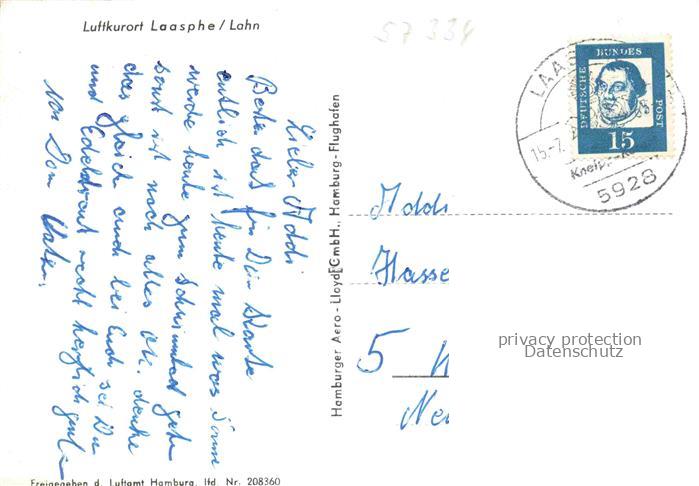 Luftkurort Laasphe / Lahn
57 334
Lieber Addi
Besten dank für Dein Karte
endlich ist heute mal was Sonne
werde heute zum Schwimbad gehn
sonst ist noch alles ok. denke
das gleich auch bei Euch sei Du
und Edeltraut recht herzlich
von Dom
Hamburger Aero - Lloyd GmbH., Hamburg - Flughafen
DEUTSCHE BUNDES POST
15
LAA
15.-7.
Kneipp
5928
Addi
Hasse
5
Ne
privacy protection
Datenschutz
Freigegeben d. Luftamt Hamburg, lfd. Nr. 208360